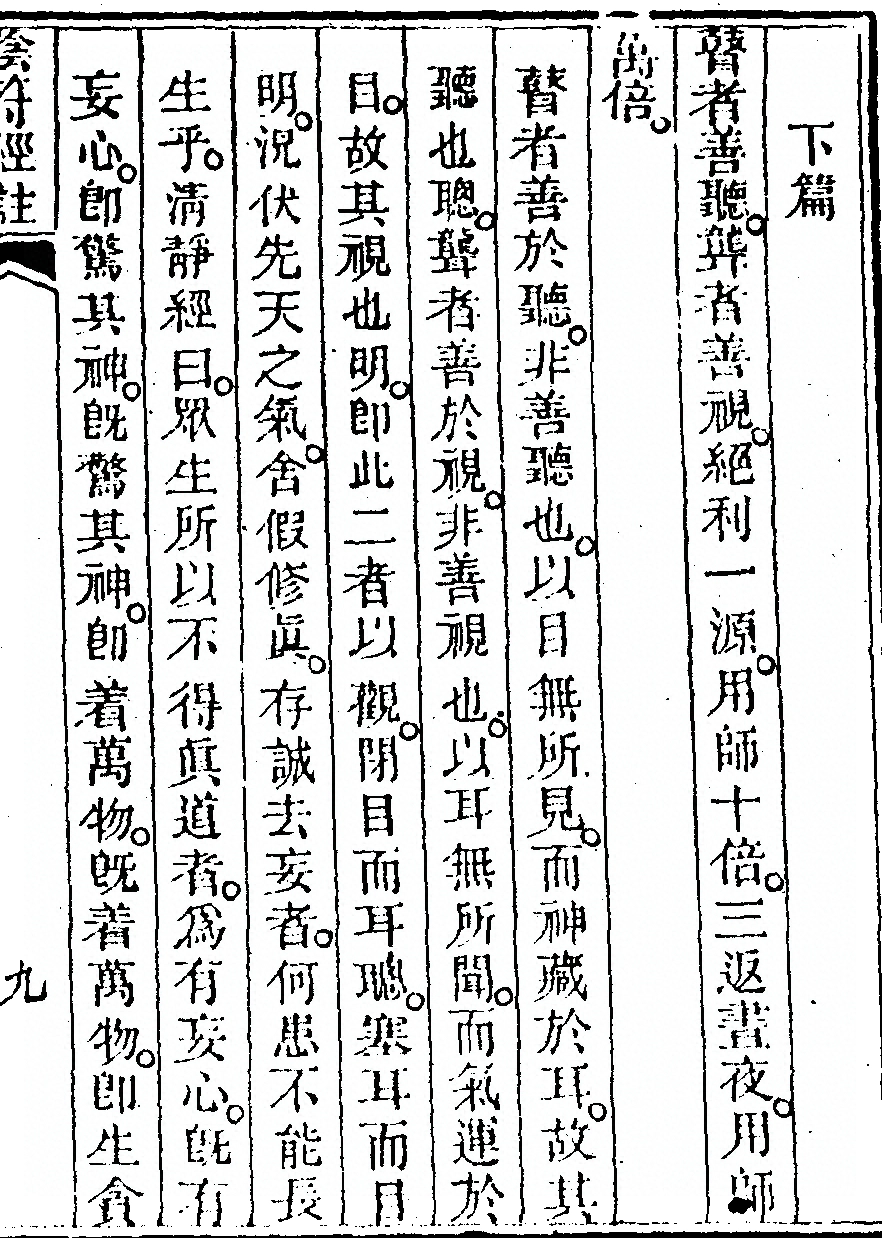 下篇
瞽者善聽。聾者善視。絕利一源。用師十倍。三返晝夜。用師
萬倍。
瞽者善於聽。非善聽也。以目無所見。而神藏於耳。故其
聽也聰。聾者善於視。非善視也。以耳無所聞。而氣運於
目。故其視也明。卽此二者以觀。閉目而耳聰。塞耳而目
明。況伏先天之氣。舍假修眞。存誠去妄者。何患不能長
生乎。淸靜經曰。眾生所以不得眞道者。爲有妄心。旣有
妄心。卽驚其神。旣驚其神。卽着萬物。旣着萬物。卽生貪
陰符經註
九